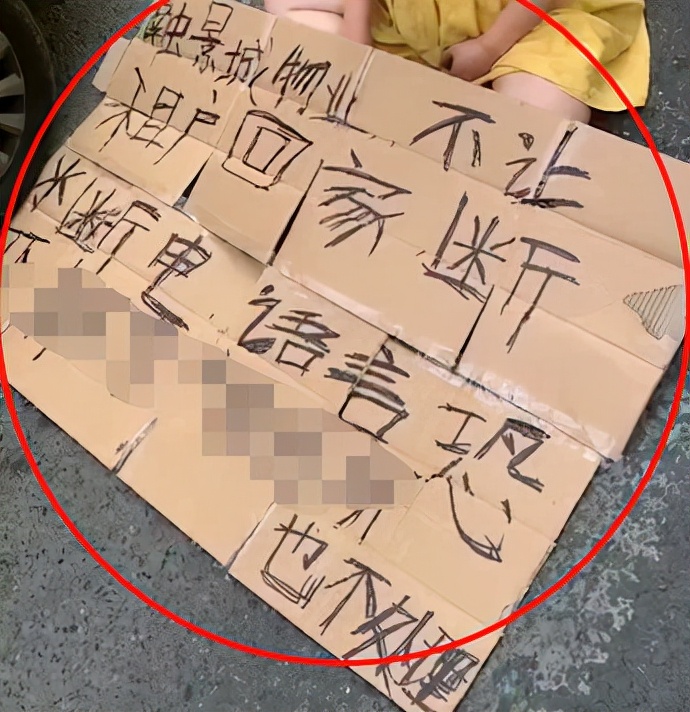 融景城物业不让
租户回家断
水断电语言恐
也不处理